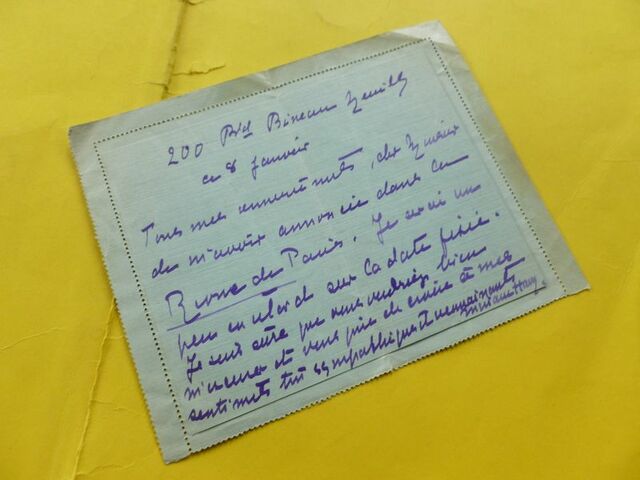 200 Bd Bineau Neuilly
ce 8 Janvier
Tous mes remerciements, cher
de m'avoir annoncée dans la
Revue de Paris. Je serai un
peu en retard sur la date fixée.
Je suis sûre que vous voudrez bien
m'excuser et vous prie de croire à mes
sentiments très sympathiques et reconnaissants
Myriam Harry